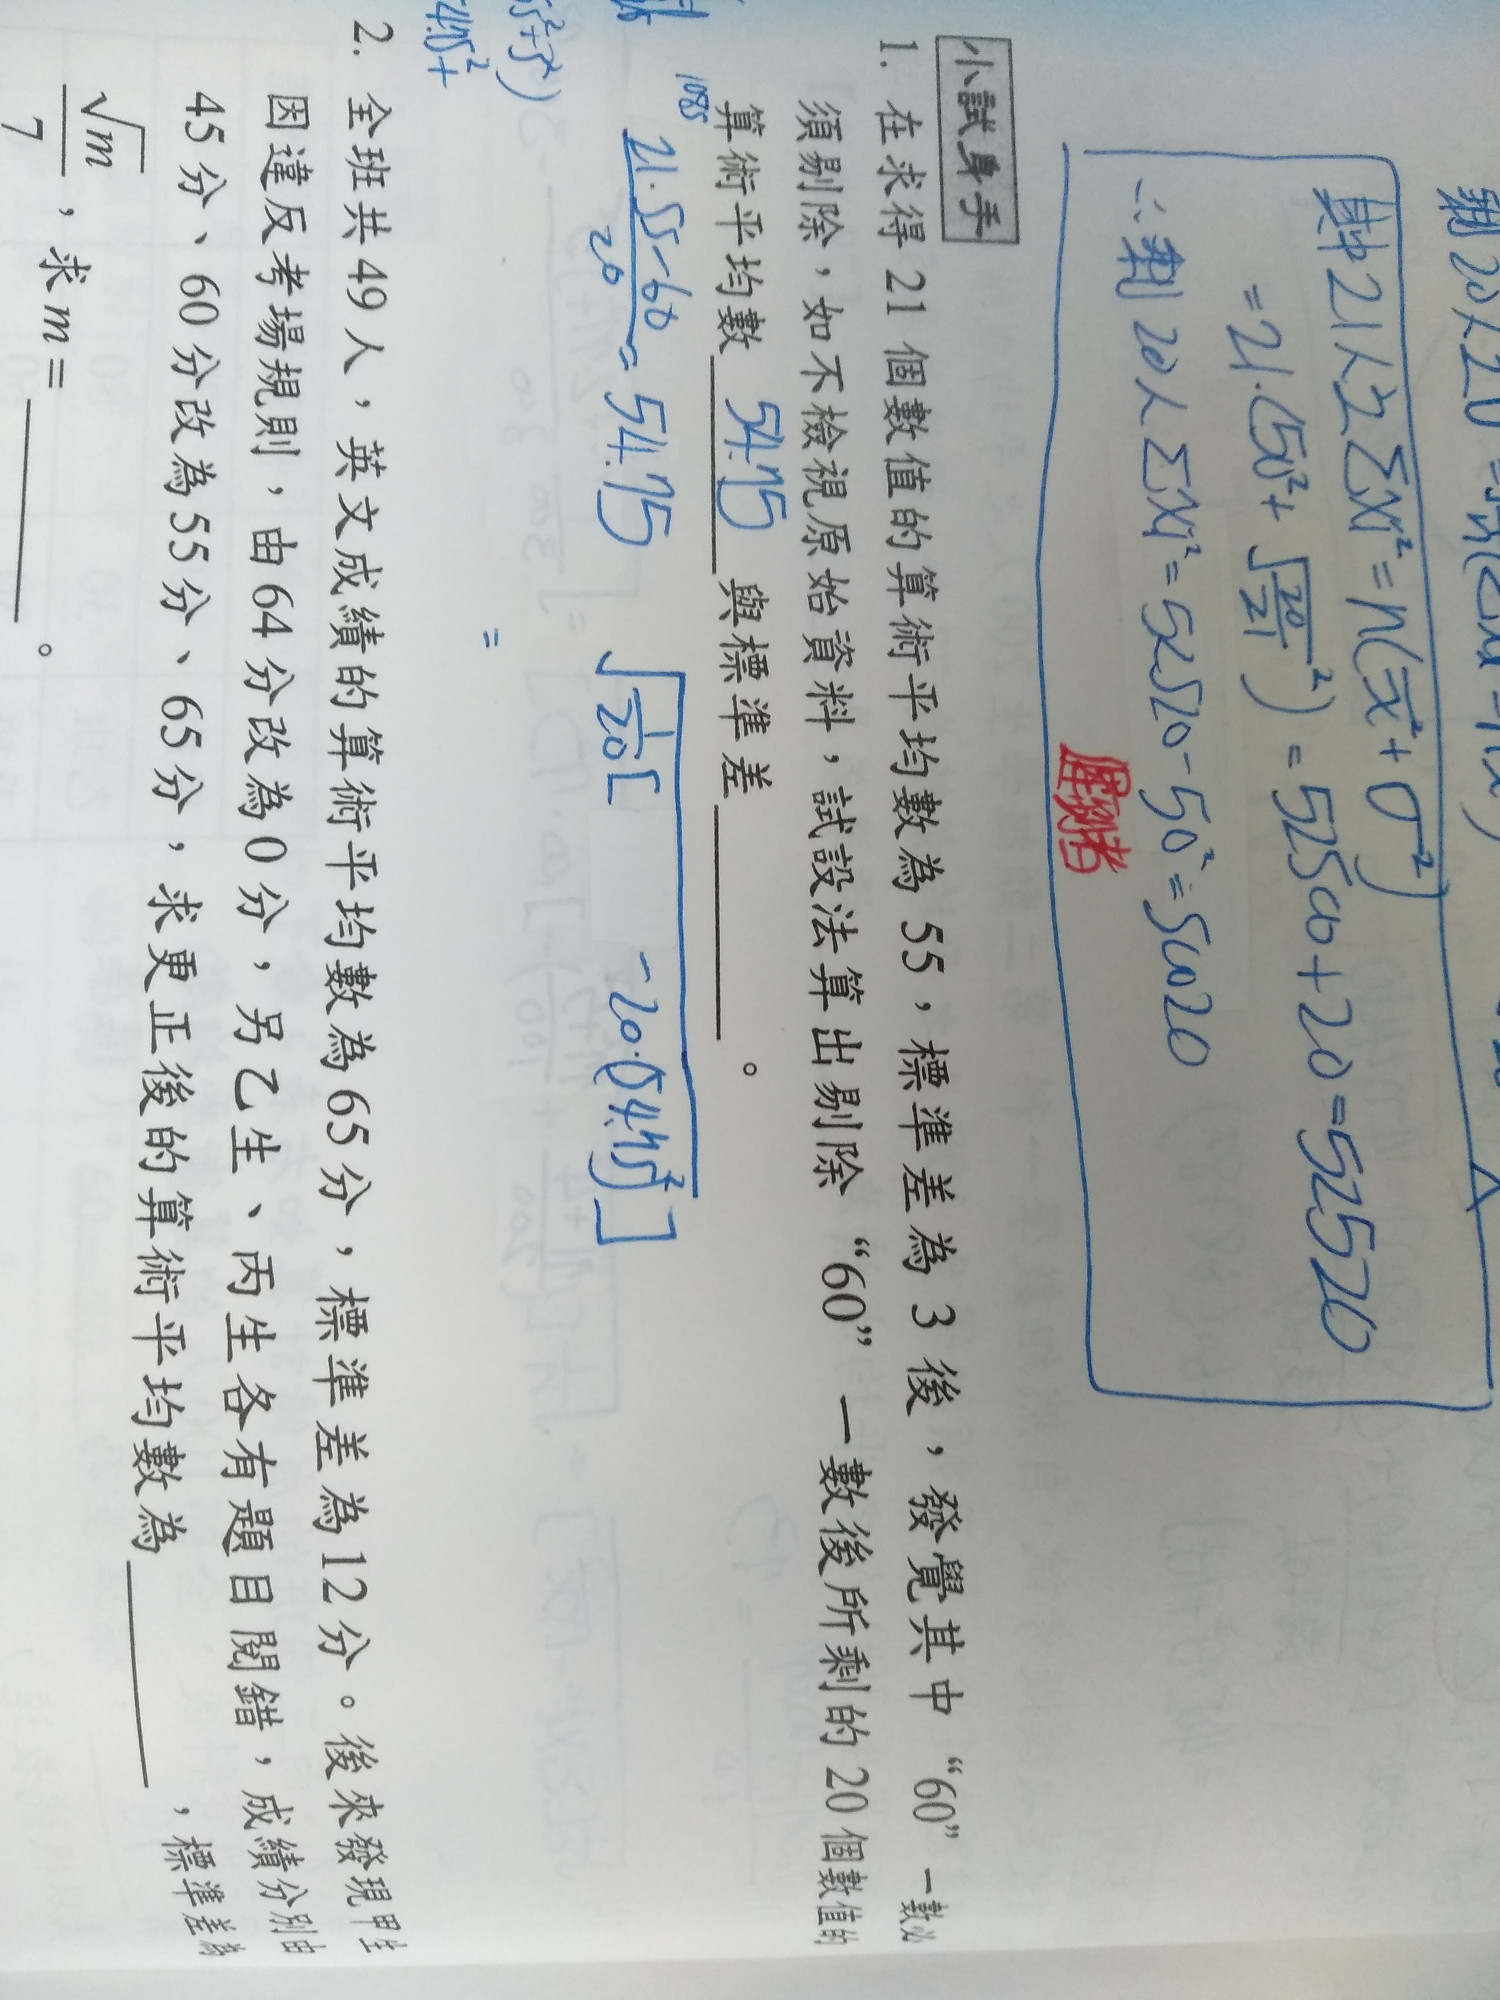 其中21人之Σxi²=n(x̄²+σ²)
=21·(50²+√(20/21)²)=52500+20=52520
∴剩20人Σxi²=52520-50²=50020
小試身手
1. 在求得 21 個數值的算術平均數為 55，標準差為 3 後，發覺其中 “60” 一數必
須剔除，如不檢視原始資料，試設法算出剔除 “60” 一數後所剩的 20 個數值的
算術平均數 54.75 與標準差______。
1085
21·55-60/20=54.75
√1/20[ -20·(54.75)²]
=
2. 全班共 49 人，英文成績的算術平均數為 65 分，標準差為 12 分。後來發現甲生
因違反考場規則，由 64 分改為 0 分，另乙生、丙生各有題目閱錯，成績分別由
45 分、60 分改為 55 分、65 分，求更正後的算術平均數為______，標準差為
√m/7，求 m =______。